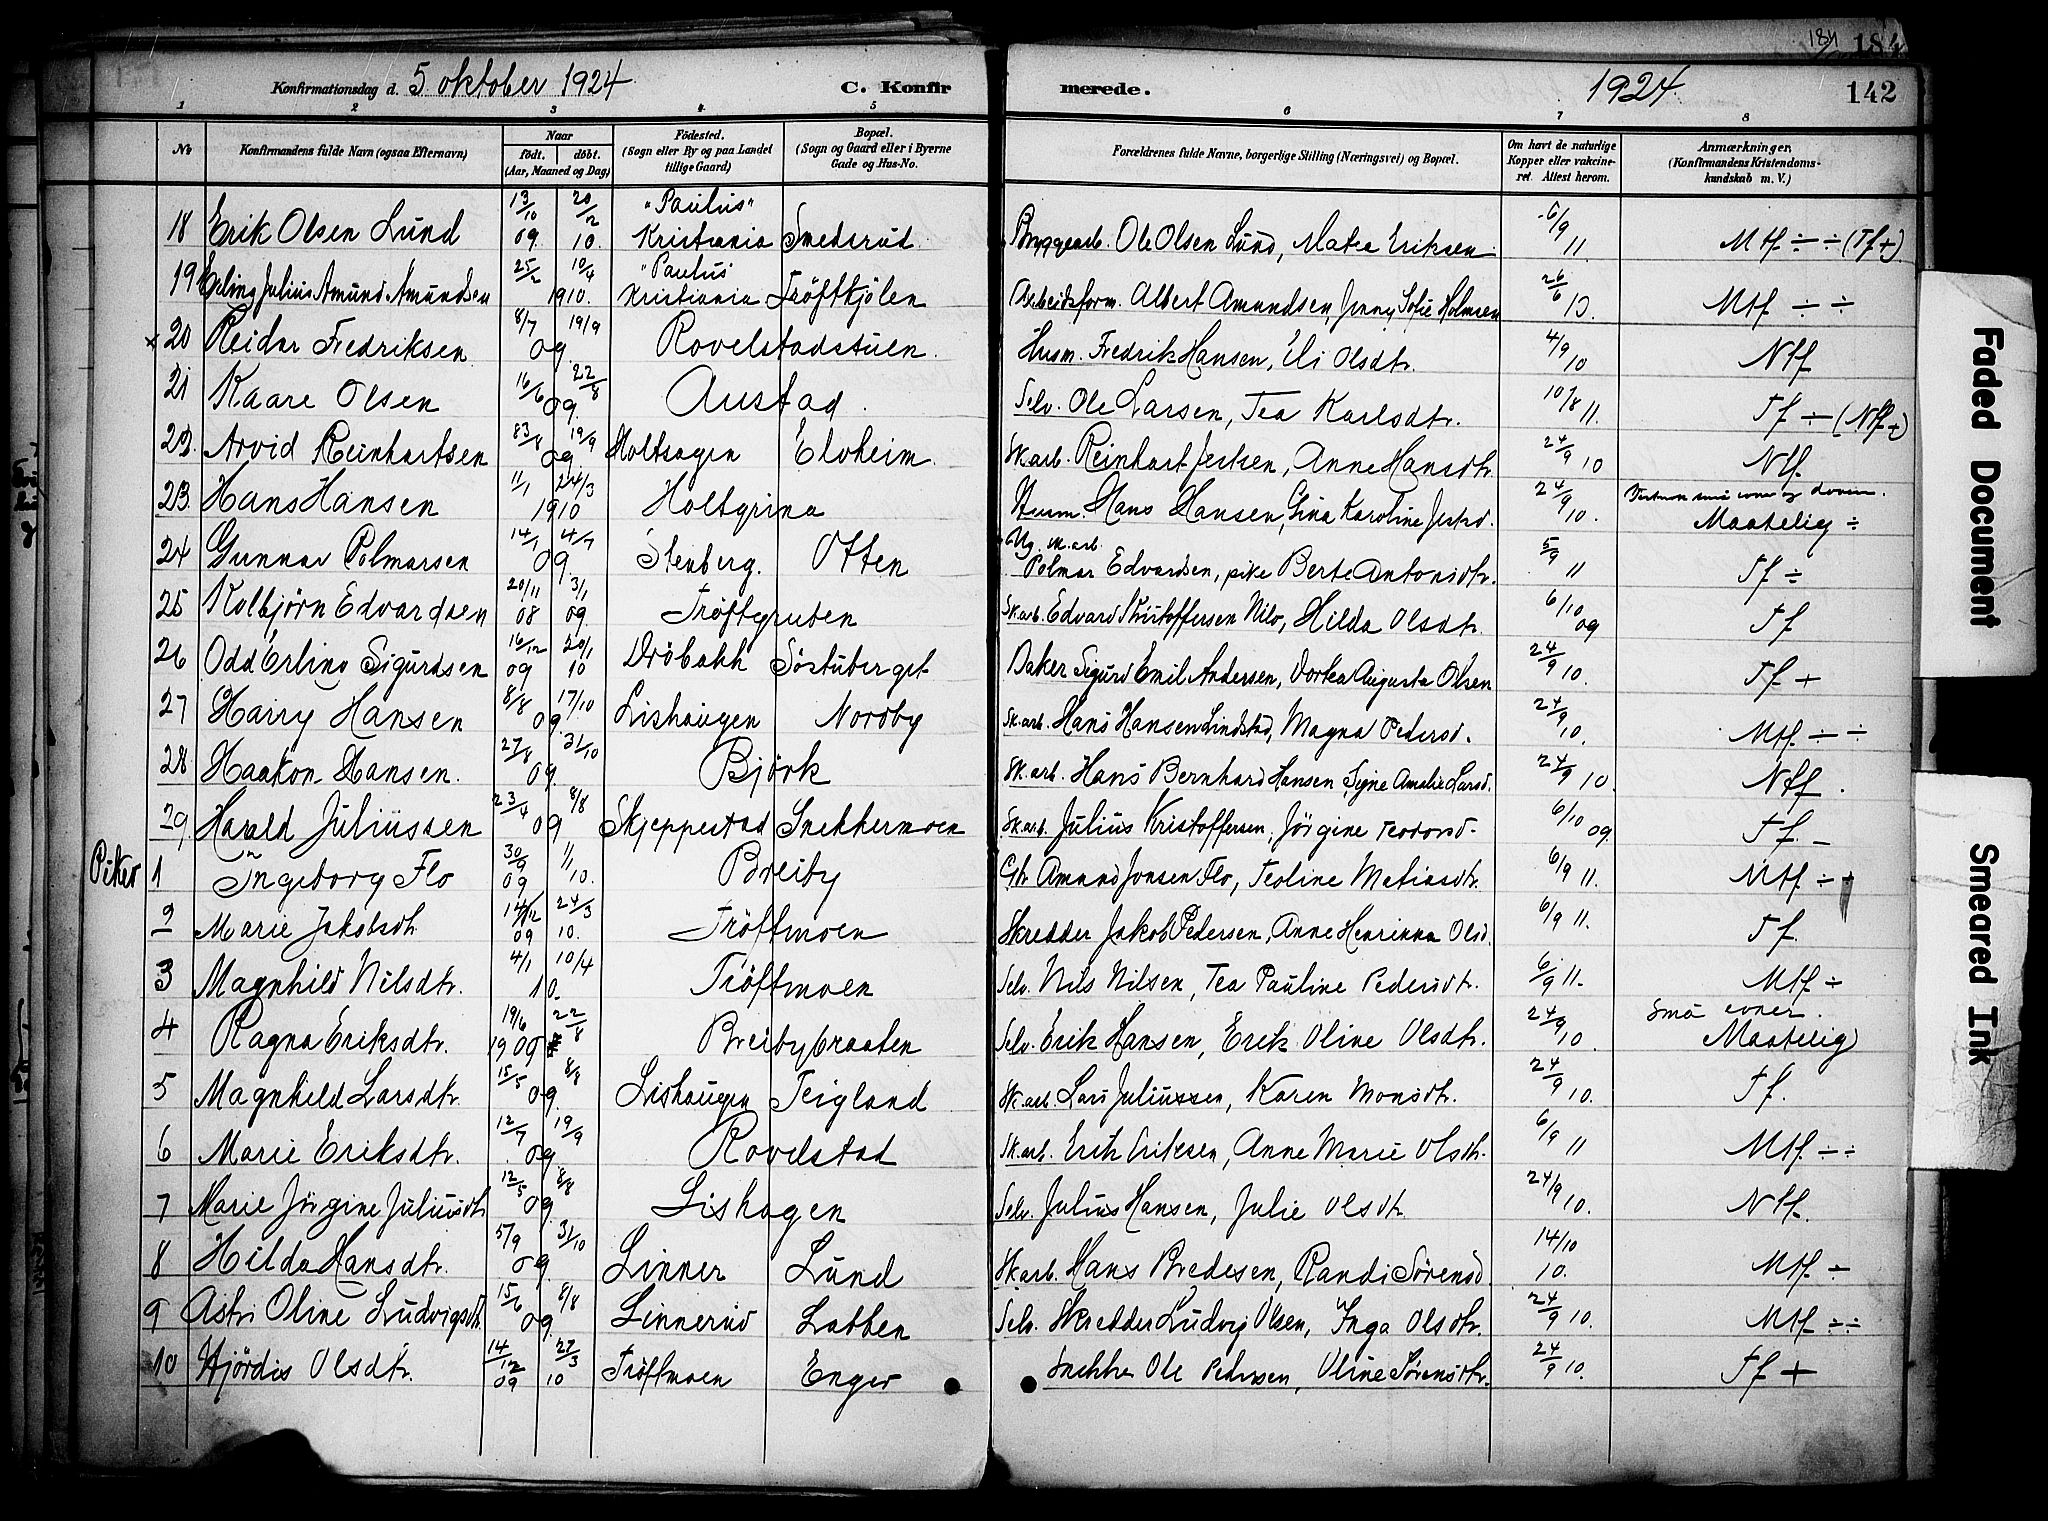 184 184
Konfirmationsdag d. 5 oktober 1924 C. Konfir merede. 1924 142
1 2 3 4 5 6 7 8
No Konfirmandens fulde Navn (ogsaa Efternavn) Naar født. døbt. (Aar, Maaned og Dag) Fødested. (Sogn eller By og paa Landet tillige Gaard) Bopæl. (Sogn og Gaard eller i Byerne Gade og Hus-No. Forældrenes fulde Navne, borgerlige Stilling (Næringsvei) og Bopæl. Om havt de naturlige Kopper eller vakcineret. Attest herom. Anmærkninger. (Konfirmandens Kristendomskundskab m. V.)
18 Erik Olsen Lund 13/10 09. 20/12 10. "Paulus" Kristiania Smedsrud. Bryggearb. Ole Olsen Lund, Matea Eriksen 6/9 11. Mtf ÷ ÷ (Tf +)
19 Erling Julius Amund Amundsen 25/2 10/4 1910. "Paulus" Kristiania Tröftkjölen Arbeidsform. Albert Amundsen, Jenny Sofie Holmsen 26/6 13. Mtf ÷ ÷
x 20 Reidar Fredriksen 8/7 19/9 09. Rovelstadstuen. Husm. Fredrik Hansen, Eli Olsdtr. 4/9 10 Ntf
21 Kaare Olsen 16/6 22/8 09. Austad. Selv. Ole Larsen, Tea Karlsdtr. 10/8 11. Tf ÷ (Ntf +)
22. Arvid Reinhartsen 19/9 09 Holtsagen Elvheim. Sk.arb. Reinhart Jensen, Anne Hansdtr 24/9 10 Ntf.
23. Hans Hansen 11/1 24/3 1910 Holtgrina Husm. Hans Hansen, Gina Karoline 24/9 10. små evner og doven. Maatelig ÷
24 Gunnar Polmarsen 14/1 4/7 09. Stenberg. Otten Ug. sk.arb. Polmar Edvardsen, pike Berte Antonsdtr. 5/9 11 Tf ÷
25 Kolbjörn Edvardsen 20/11 08 3/1 09. Tröftgruben Sk.arb. Edvard Kristoffersen Nilo, Hilda Olsdtr. 6/10 09 Tf
26 Odd Erling Sigurdsen 16/12 09 20/1 10 Dröbakk Söstuberget Baker Sigurd Emil Andersen, Dortea Augusta Olsen 24/9 10. Tf +
27 Harry Hansen 8/8 17/10 09 Lishaugen Nordby Sk.arb. Hans Hansen Lindstad, Magna Pedersd. 24/9 10. Mtf. ÷ ÷
28 Haakon Hansen. 27/8 31/10 09. Björk Sk.arb. Hans Bernhard Hansen, Signe Amalie Larsd. 24/9 10. Ntf.
29 Harald Juliussen 23/4 8/8 09 Skjeppestad Snekkermoen Sk.arb. Julius Kristoffersen, Jörgine Teodorsd. 6/10 09. Tf. _
Piker 1 Ingeborg Flo 30/9 09 1/1 10. Breiby Gbr Amund Jonsen Flo, Teoline Matiasdtr. 6/9 11. Mtf ÷ ÷
2 Marie Jakobsdtr. 14/12 09 24/3 10. Tröftmoen Skredder Jakob Pedersen, Anne Henrikka Olsd. 6/9 11. Tf.
3 Magnhild Nilsdtr. 4/1 10/4 10. Tröftmoen Selv. Nils Nilsen, Tea Pauline Pedersdtr. 6/9 11. Mtf ÷
4 Ragna Eriksdtr. 19/6 22/8 1909 Breibybraaten Selv. Erik Hansen, Erik. Oline Olsdtr. 24/9 10. Små evner. Maatelig
5 Magnhild Larsdtr. 15/5 8/8 09. Lishaugen Teigland Sk.arb. Lars Juliussen, Karen Monsdtr. 24/9 10. Tf.
6 Marie Eriksdtr. 12/7 19/9 09. Rovelstad Sk.arb. Erik Eriksen, Anne Marie Olsdtr. 6/9 11 Mtf. ÷ ÷
7 Marie Jörgine Juliusdtr 12/5 8/8 09. Lishagen Selv. Julius Hansen, Julie Olsdtr. 24/9 10. Ntf.
8 Hilda Hansdtr. 5/9 31/10 09. Linner Lund Sk.arb. Hans Bredesen, Randi Sörensd. 14/10 10. Mtf ÷
9 Astri Oline Ludvigsdtr. 15/6 8/8 09. Linnerud Labben Selv. Skredder Ludvig Olsen, Inga Olsdtr. 24/9 10. Mtf ÷ ÷
10 Hjördis Olsdtr. 14/12 09 27/3 10 Tröftmoen Enger Snekker Ole Pedersen, Oline Sörensdtr. 24/9 10. Tf +
Faded Document
Smeared Ink